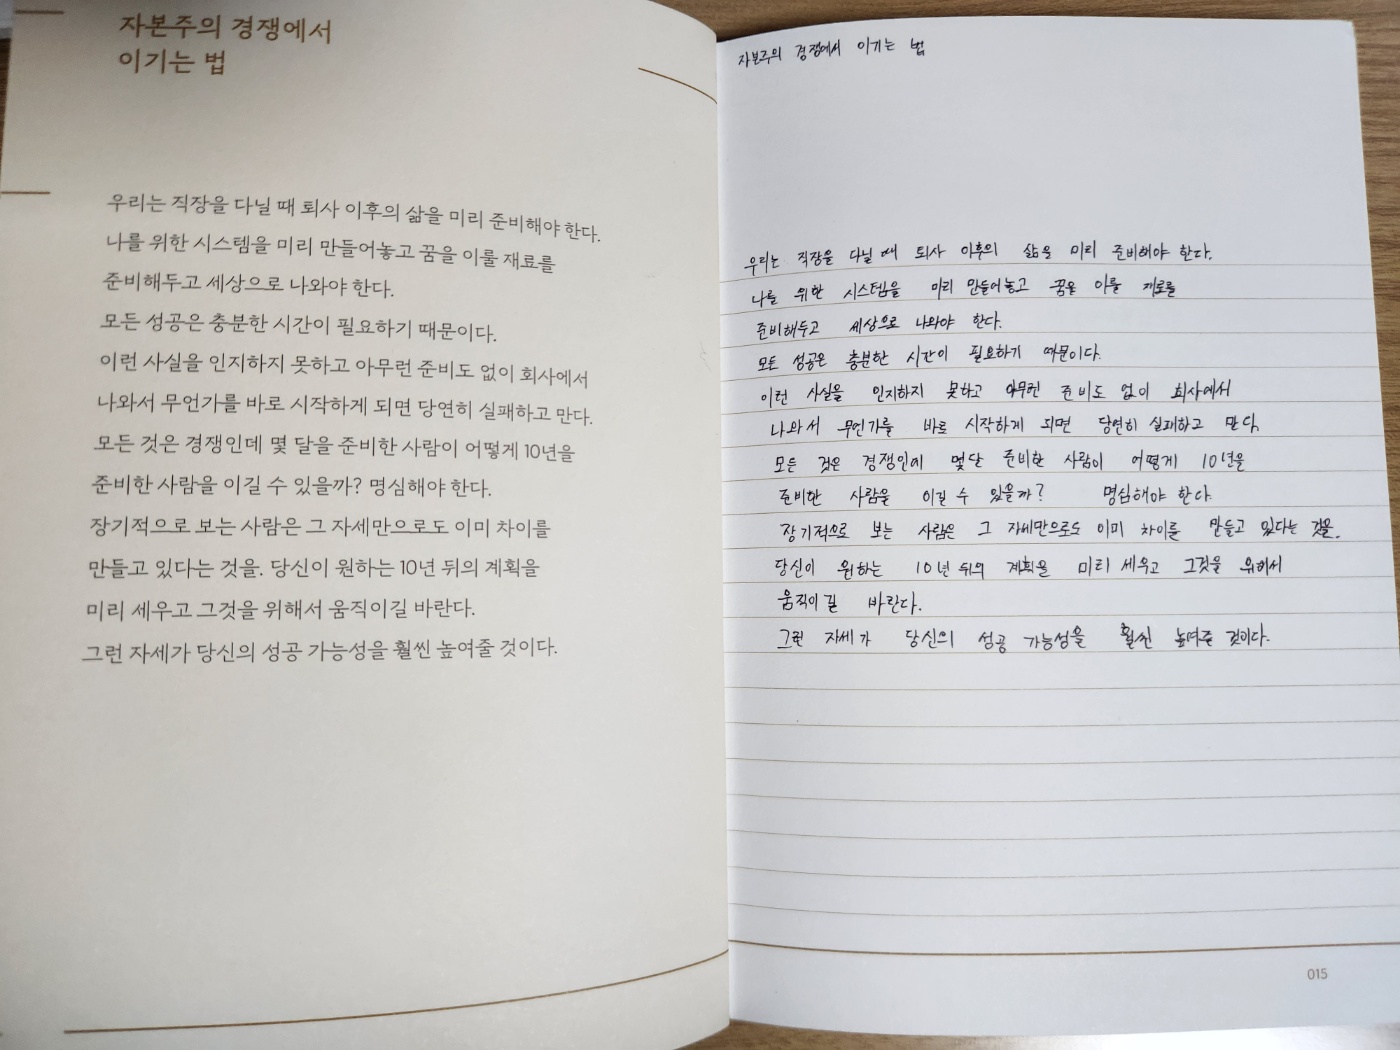 자본주의 경쟁에서
이기는 법
우리는 직장을 다닐 때 퇴사 이후의 삶을 미리 준비해야 한다.
나를 위한 시스템을 미리 만들어놓고 꿈을 이룰 재료를
준비해두고 세상으로 나와야 한다.
모든 성공은 충분한 시간이 필요하기 때문이다.
이런 사실을 인지하지 못하고 아무런 준비도 없이 회사에서
나와서 무언가를 바로 시작하게 되면 당연히 실패하고 만다.
모든 것은 경쟁인데 몇 달을 준비한 사람이 어떻게 10년을
준비한 사람을 이길 수 있을까? 명심해야 한다.
장기적으로 보는 사람은 그 자세만으로도 이미 차이를
만들고 있다는 것을. 당신이 원하는 10년 뒤의 계획을
미리 세우고 그것을 위해서 움직이길 바란다.
그런 자세가 당신의 성공 가능성을 훨씬 높여줄 것이다.
자본주의 경쟁에서 이기는 법
우리는 직장을 다닐 때 퇴사 이후의 삶을 미리 준비해야 한다.
나를 위한 시스템을 미리 만들어놓고 꿈을 이룰 재료를
준비해두고 세상으로 나와야 한다.
모든 성공은 충분한 시간이 필요하기 때문이다.
이런 사실을 인지하지 못하고 아무런 준비도 없이 회사에서
나와서 무언가를 바로 시작하게 되면 당연히 실패하고 만다.
모든 것은 경쟁인데 몇달 준비한 사람이 어떻게 10년을
준비한 사람을 이길 수 있을까? 명심해야 한다.
장기적으로 보는 사람은 그 자세만으로도 이미 차이를 만들고 있다는 것을.
당신이 원하는 10년 뒤의 계획을 미리 세우고 그것을 위해서
움직이길 바란다.
그런 자세가 당신의 성공 가능성을 훨씬 높여줄 것이다.
015